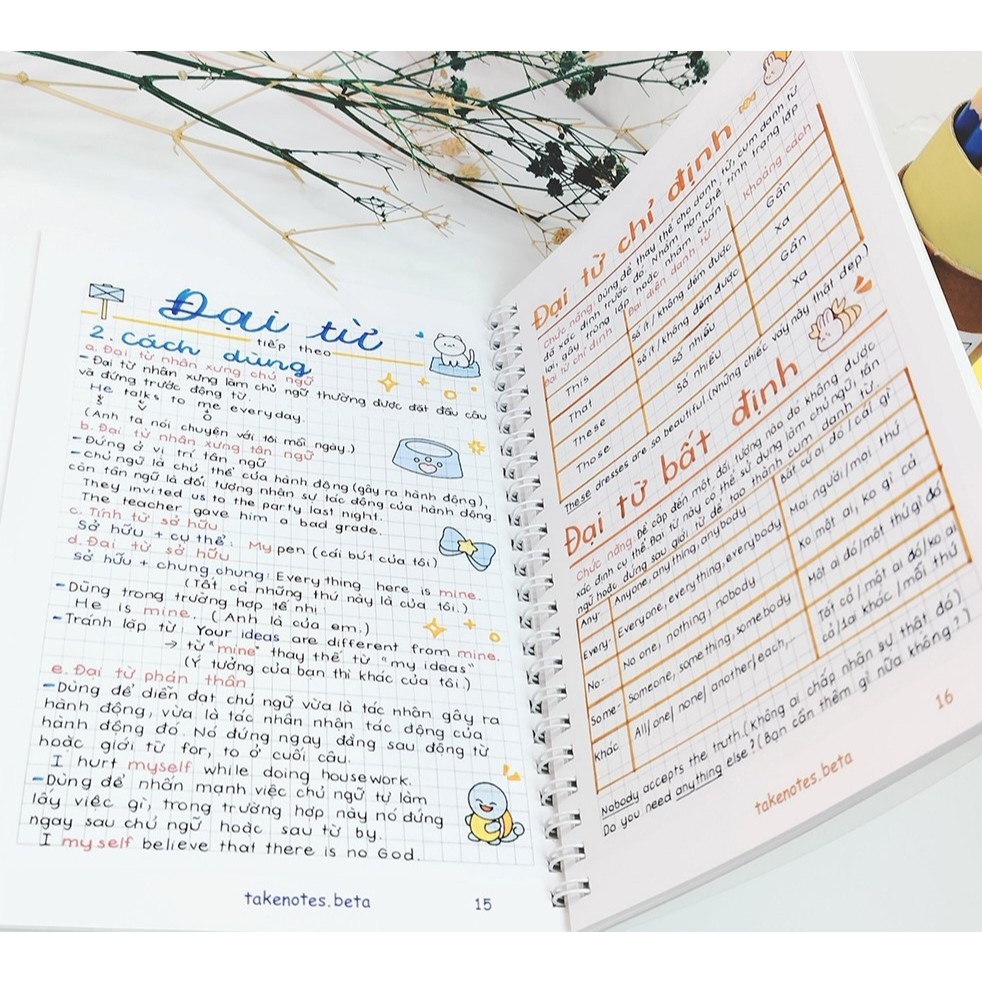 Đại từ
tiếp theo
2. Cách dùng
a. Đại từ nhân xưng chủ ngữ
- Đại từ nhân xưng làm chủ ngữ thường được đặt đầu câu
và đứng trước động từ.
He talks to me everyday.
S V O
(Anh ta nói chuyện với tôi mỗi ngày.)
b. Đại từ nhân xưng tân ngữ
- Đứng ở vị trí tân ngữ
- Chủ ngữ là chủ thể của hành động (gây ra hành động),
còn tân ngữ là đối tượng nhân sự tác động của hành động.
They invited us to the party last night.
The teacher gave him a bad grade.
c. Tính từ sở hữu
Sở hữu + cụ thể: My pen (cái bút của tôi)
d. Đại từ sở hữu
Sở hữu + chung chung: Everything here is mine.
(Tất cả những thứ này là của tôi.)
- Dùng trong trường hợp tế nhị:
He is mine. (Anh là của em.)
- Tránh lặp từ: Your ideas are different from mine.
→ từ "mine" thay thế từ "my ideas"
(Ý tưởng của bạn thì khác của tôi.)
e. Đại từ phản thân
- Dùng để diễn đạt chủ ngữ vừa là tác nhân gây ra
hành động, vừa là tác nhân nhận tác động của
hành động đó. Nó đứng ngay đằng sau động từ
hoặc giới từ for, to ở cuối câu.
I hurt myself while doing housework.
- Dùng để nhấn mạnh việc chủ ngữ tự làm
lấy việc gì, trong trường hợp này nó đứng
ngay sau chủ ngữ hoặc sau từ by.
I myself believe that there is no God.
takenotes.beta 15
Đại từ chỉ định
Chức năng: Dùng để thay thế cho danh từ, cụm danh từ
đã xác định trước đó. Nhằm hạn chế tình trạng lặp
lại, gây trùng lặp hoặc nhàm chán
Đại từ chỉ định Đại diện danh từ Khoảng cách
This số ít / không đếm được Gần
That số ít / không đếm được Xa
These Số nhiều Gần
Those Số nhiều Xa
These dresses are so beautiful. (Những chiếc váy này thật đẹp.)
Đại từ bất định
Chức năng: Đề cập đến một đối tượng nào đó không được
xác định cụ thể. Đại từ này có thể sử dụng làm chủ ngữ, tân
ngữ hoặc đứng sau giới từ để tạo thành cụm danh từ.
Any- Anyone, anything, anybody Bất cứ ai đó / cái gì
Every- Everyone, everything, everybody Mọi người / mọi thứ
No- No one, nothing, nobody Ko một ai, ko gì cả
Some- Someone, something, somebody Một ai đó / một thứ gì đó
Khác All / one / none / another / each, Tất cả / một ai đó / ko ai
cả / cái khác / mỗi thứ
Nobody accepts the truth. (Không ai chấp nhận sự thật đó)
Do you need anything else? (Bạn cần thêm gì nữa không?)
takenotes.beta 16